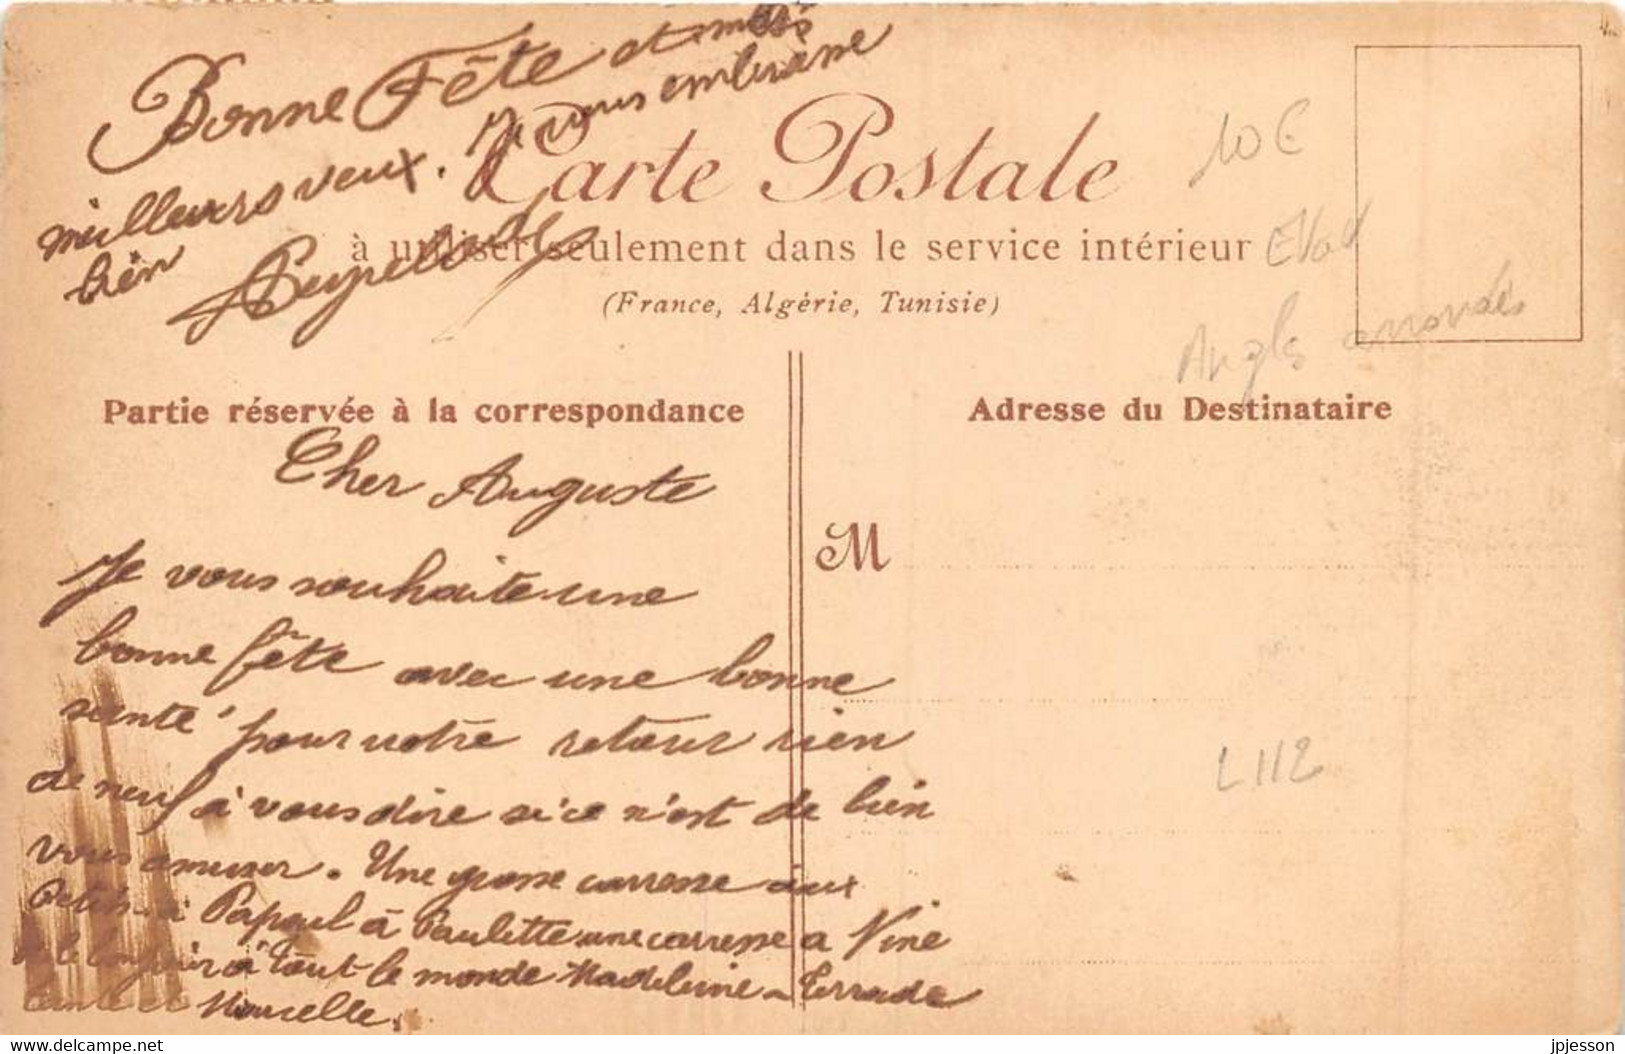 Bonne Fête et mes
meilleurs veux. Je vous embrasse
bien
Carte Postale
à utiliser seulement dans le service intérieur
(France, Algérie, Tunisie)
10 €
Angls arrondis
Partie réservée à la correspondance
Cher Auguste
Je vous souhaite une
bonne fête avec une bonne
santé pour votre retour rien
de neuf à vous dire si ce n'est de bien
vous amuser. Une grosse carresse aux
Petits à à Paulette une carresse a Nine
à tout le monde Madeleine
et Marcelle.
Adresse du Destinataire
M
L112
www.delcampe.net
jpjesson